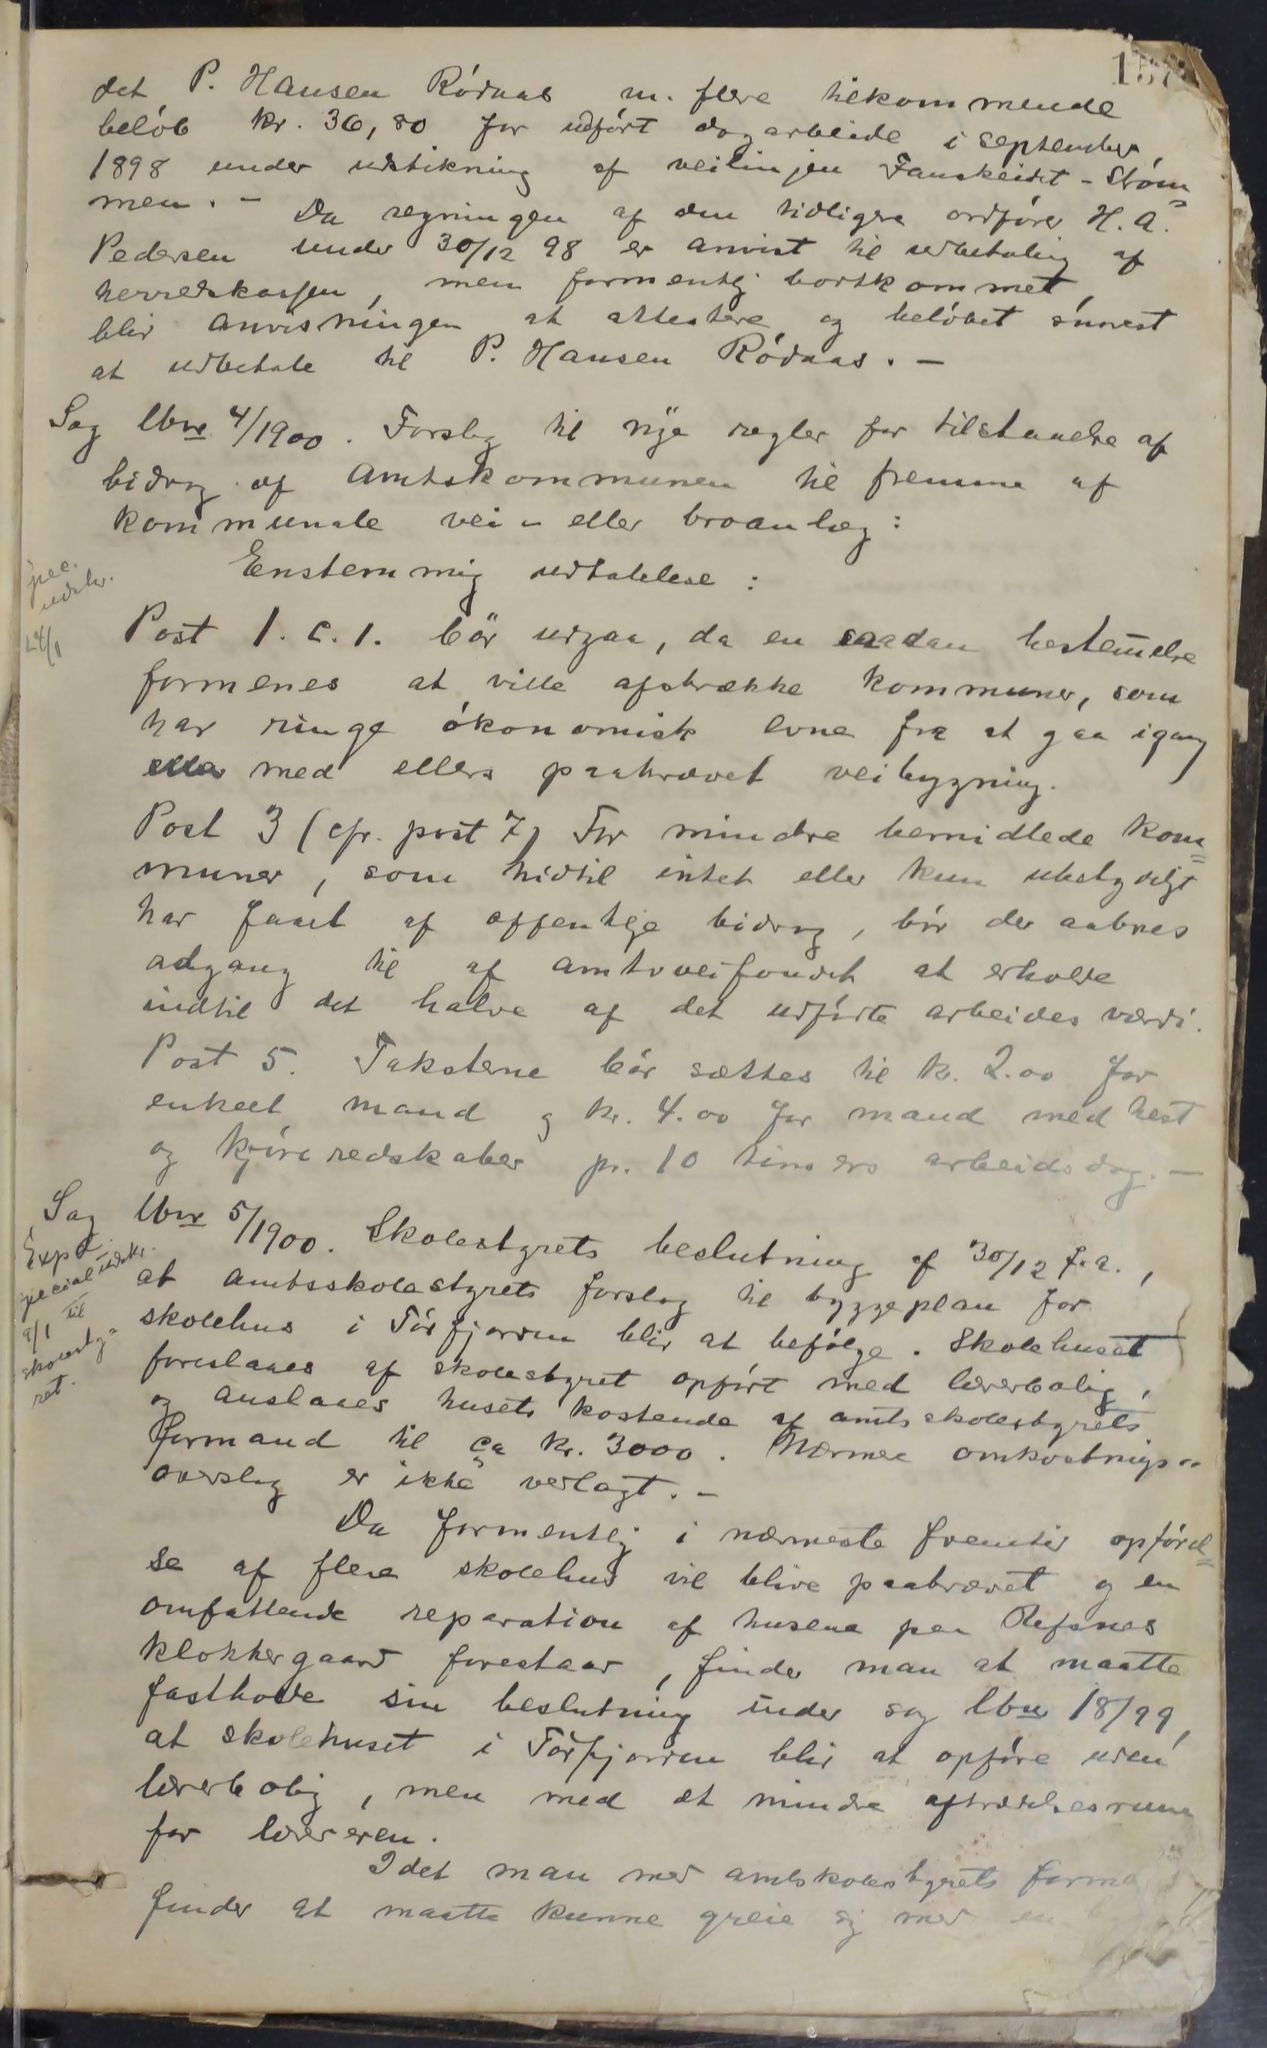 157
det P. Hansen Rödaas m. flere tilkommende
beløb kr. 36,80 for udført dagarbeide i september
1898 under udstikning af veilinjen Fauskeidet - Strøm=
men. - Da regningen af den tidligere ordfører H. A.
Pedersen under 30/12 98 er anvist til udbetaling af
herredskassen, men formentlig bortkommet,
blir anvisningen at attestere og beløbet snarest
at udbetale til P. Hansen Rödaas. -
Sag lbnr 4/1900. Forslag til nye regler for tilstaaelse af
bidrag af Amtskommunen til fremme af
kommunale vei- eller broanlæg:
Enstemmig udtalelse:
spec.
udskr.
24/1
Post 1. c. 1. bør udgaa, da en saadan bestemmelse
formenes at ville afskrække kommuner, som
har ringe økonomisk evne fra at gaa igang
med ellers paakrævet veibygning.
Post 3 (cfr. post 7) For mindre bemidlede kom=
muner, som hidtil intet eller kun ubetydeligt
har faaet af offentlige bidrag, bør der aabnes
adgang til af amtsveifondet at erholde
indtil det halve af det udførte arbeides værdi.
Post 5. Taksterne bør sættes til kr. 2.00 for
enkelt mand og kr. 4.00 for mand med hest
og kjøreredskaber pr. 10 timers arbeidsdag. -
Sag lbnr 5/1900. Skolestyrets beslutning af 30/12 f. a.,
Exp.
special udskr.
9/1 til
skolesty=
ret.
at amtsskolestyrets forslag til byggeplan for
skolehus i Torfjorden blir at befølge. Skolehuset
foreslaaes af skolestyret opført med lærerbolig,
og anslaaes husets kostende af amtsskolestyrets
formand til ca kr. 3000. Nærmere omkostnings=
overslag er ikke verlagt. -
Da formentlig i nærmeste fremtid opførel=
se af flere skolehus vil blive paakrævet og en
omfattende reparation af husene paa Refsnes
klokkergaard forestaar, finder man at maatte
fastholde sin beslutning under sag lbnr 18/99,
at skolehuset i Torfjorden blir at opføre uden
lærerbolig, men med et mindre aftrædelsesrum
for læreren.
Idet man med amtskolestyrets
finder at maatte kunne greie sig med en